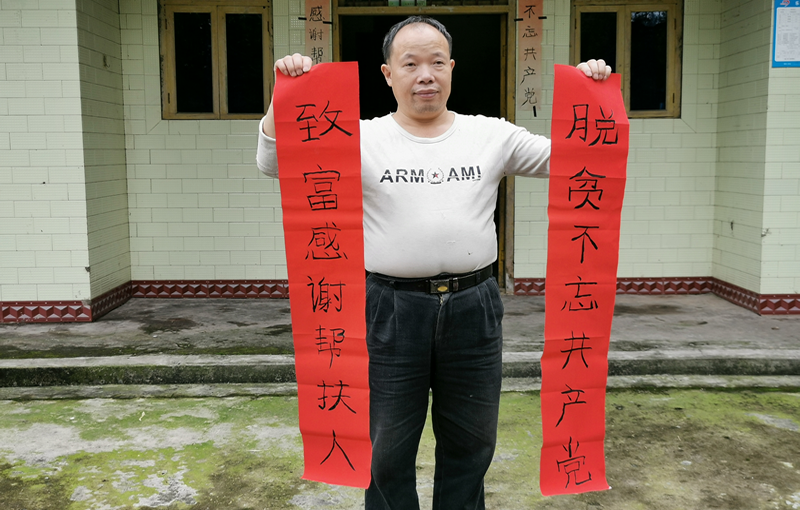 脱贫不忘共产党
致富感谢帮扶人
不忘共产党
感谢帮
ARM AMI